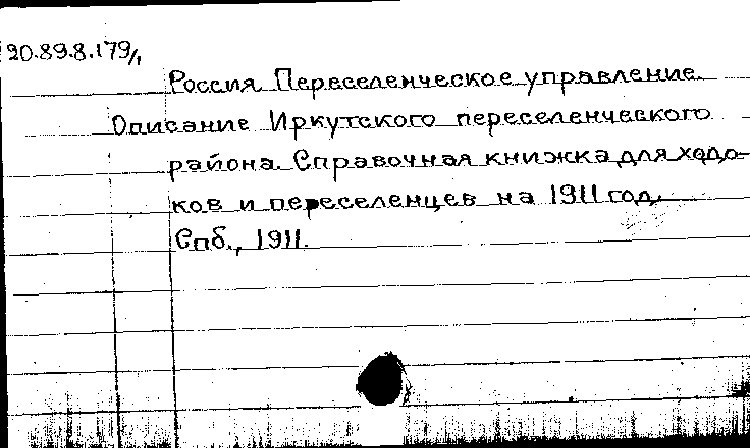 20.89.8.179/1
Россия Переселенческое управление.
Описание Иркутского переселенческого
района. Справочная книжка для ходо-
ков и переселенцев на 1911 год.
Спб., 1911.